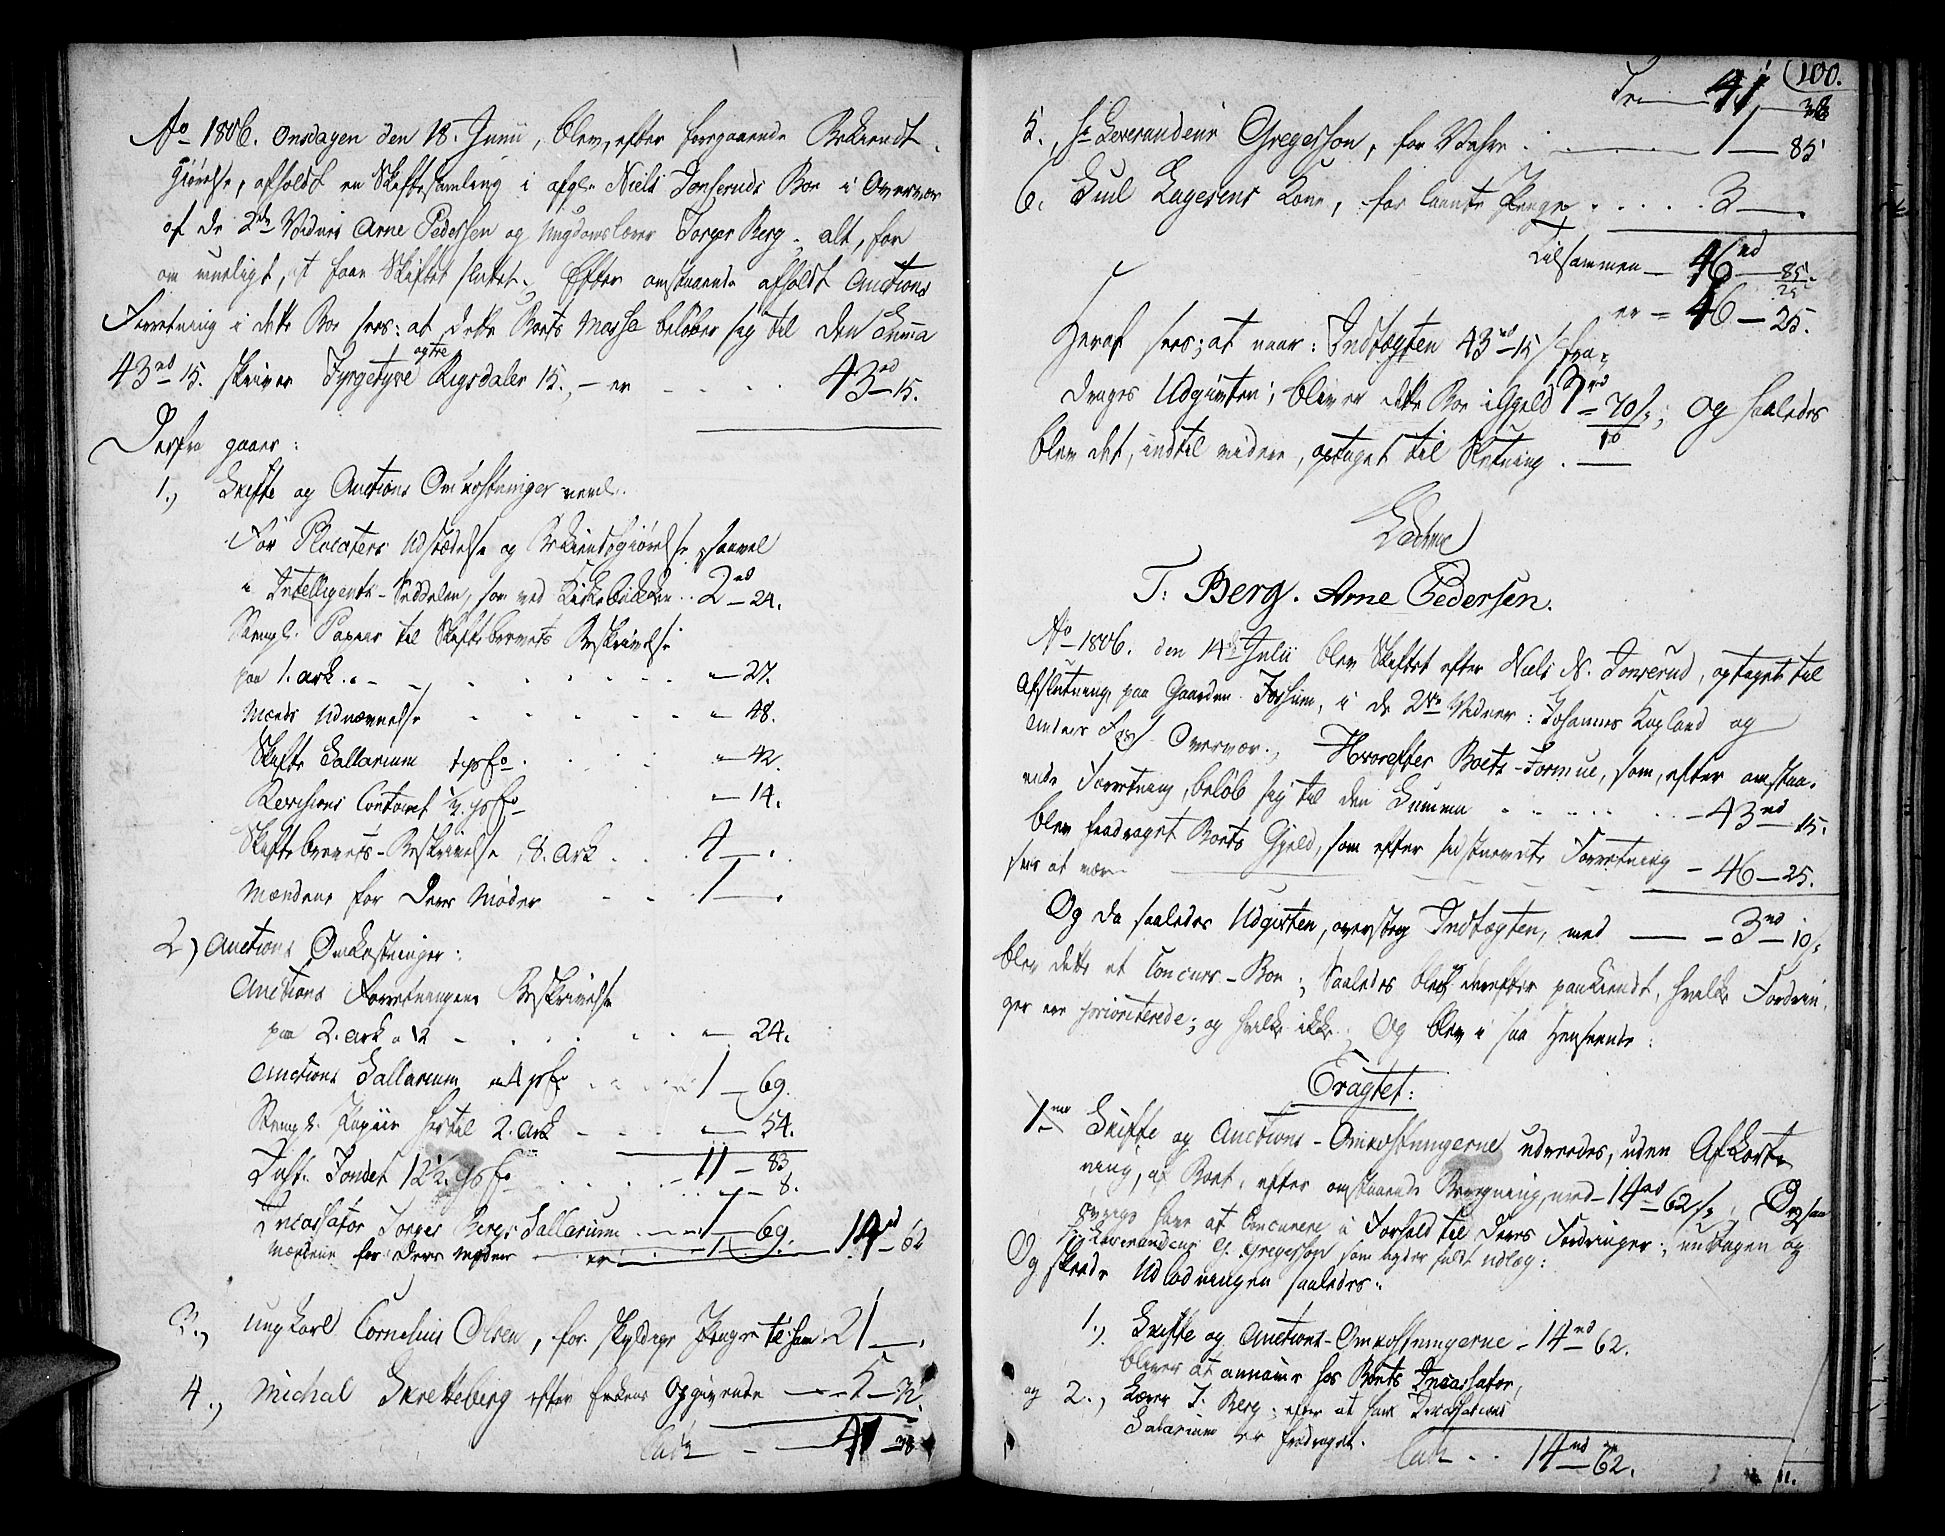 Ao 1806. Onsdagen den 18. Junii, blev, efter foregaaende Bekiendt-
giørelse, afholdt en Skiftesamling i afgl. Niels Tonseruds Boe i Overvær
af de 2de Vidner Arne Pedersen og Ungdomslærer Torger Berg, alt, for
om mueligt, at faae Skiftet sluttet. Efter omstaaende afholdt Auctions
Forretning i dette Boe sees: at dette Boets Massa beløber sig til den Summa
43rd 15. skriver Fyrgetyve og tre Rigsdaler 15., er - - - 43rd - 15.
Derfra gaaer:
1., Skifte og Auctions Omkostninger neml.
For Placaters Udstædelse og Bekiendtgiørelse saavel
i Intelligents-Seddelen, som ved Kirkebakken . . 2rd - 24.
Stempl. Papiir til Skiftebrevets Beskrivelse
paa 1. ark. . - - - 27.
Mænds Udnævnelse - - - 48.
Skifte Sallarium 1 p Co . . . - 42.
Revisions Contoret ½ p Co - - 14.
Skiftebrevets-Beskrivelse, 8. Ark . . . 4 - .
Mændene for deres Møder - - - 1 - .
2) Auctions Omkostninger:
Auctions Forretningens Beskrivelse
paa 2. ark a 12 - . . . - 24.
Auctions Sallarium a 4 p Co . . . 1 - 69.
Stempl. Papiir hertil 2. Ark - - - 54.
11 - 83.
Just. Fondet 12½ p Co . . . 1 - 8.
Incassator Torger Bergs Sallarium . - - 1 - 69.
Mændene for deres Møder - er - 1 - 14rd - 62
3., Ungkarl Cornelius Olsen, for skyldige Penge til ham 21 - .
4., Michal Skretteberg efter Enkens Opgivende - - 5 - 72.
Lat. - - 41 - 38
100.
Tr. - 41 - 38
5., Hr. Leverandeur Gregersson, for Vahre . - - 1 - 85
6. Gul Lagesens Kone, for laante Penge . . . . . 3 - .
Tilsammen - 46rd - 85.
25
er - 46 - 25.
Heraf sees; at naar: Indtægten 43rd - 15 s. fra-
drages Udgivten; bliver dette Boe i Gjeld 3rd - 70 s.; og saaledes
10
blev det, indtil videre, optaget til Slutning. -
T. Berg. Arne Pedersen.
Ao 1806. den 14de Julii blev Skiftet efter Niels N. Tonserud, optaget til
Afslutning paa Gaarden Fossum, i de 2de Vidner: Johannes Kopland og
Anders Foss Overvær. Hvorefter Boets-Formue, som, efter omstaa-
ende Forretning, beløb sig til den Summa . . . . . . - 43rd 15.
blev fradraget Boets Gjeld, som efter sidstnævnte Forretning - 46 - 25.
sees at være
Og da saaledes Udgivten, oversteg Indtægten, med - - 3rd - 10 s.
blev dette et Concurs-Boe; Saaledes blev derefter paakiendt, hvilke Fordrin-
ger ere prioriterede; og hvilke ikke. Og blev i saa Henseende:
Eragtet:
1mo Skifte og Auctions-Omkostningerne udreedes, uden Afkort-
ning, af Boet, efter omstaaende Beregning, med - 14rd 62 s.; De
øvrige have at Concurere i Forhold til deres Fordringer; undtagen
Hr. Leverandeur G. Gregersson som nyder fuldt udlæg:
Og skeede Udlodningen saaledes:
1., Skifte og Auctions-Omkostningerne - 14rd - 62.
bliver at annamme hos Boets Incassator,
og 2., Lærer T. Berg; efter at hans Incassations
Salarium er fradraget.
Lat. . . 14rd - 62.